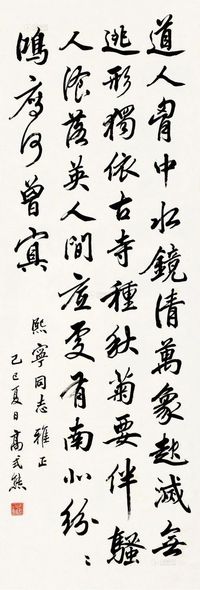 道人胷中水鏡清萬象起滅無
逃形獨依古寺種秋菊要伴騷
人飡落英人間底處有南北紛〻
鴻雁何曾冥
熙寧同志雅正
己巳夏日高式熊